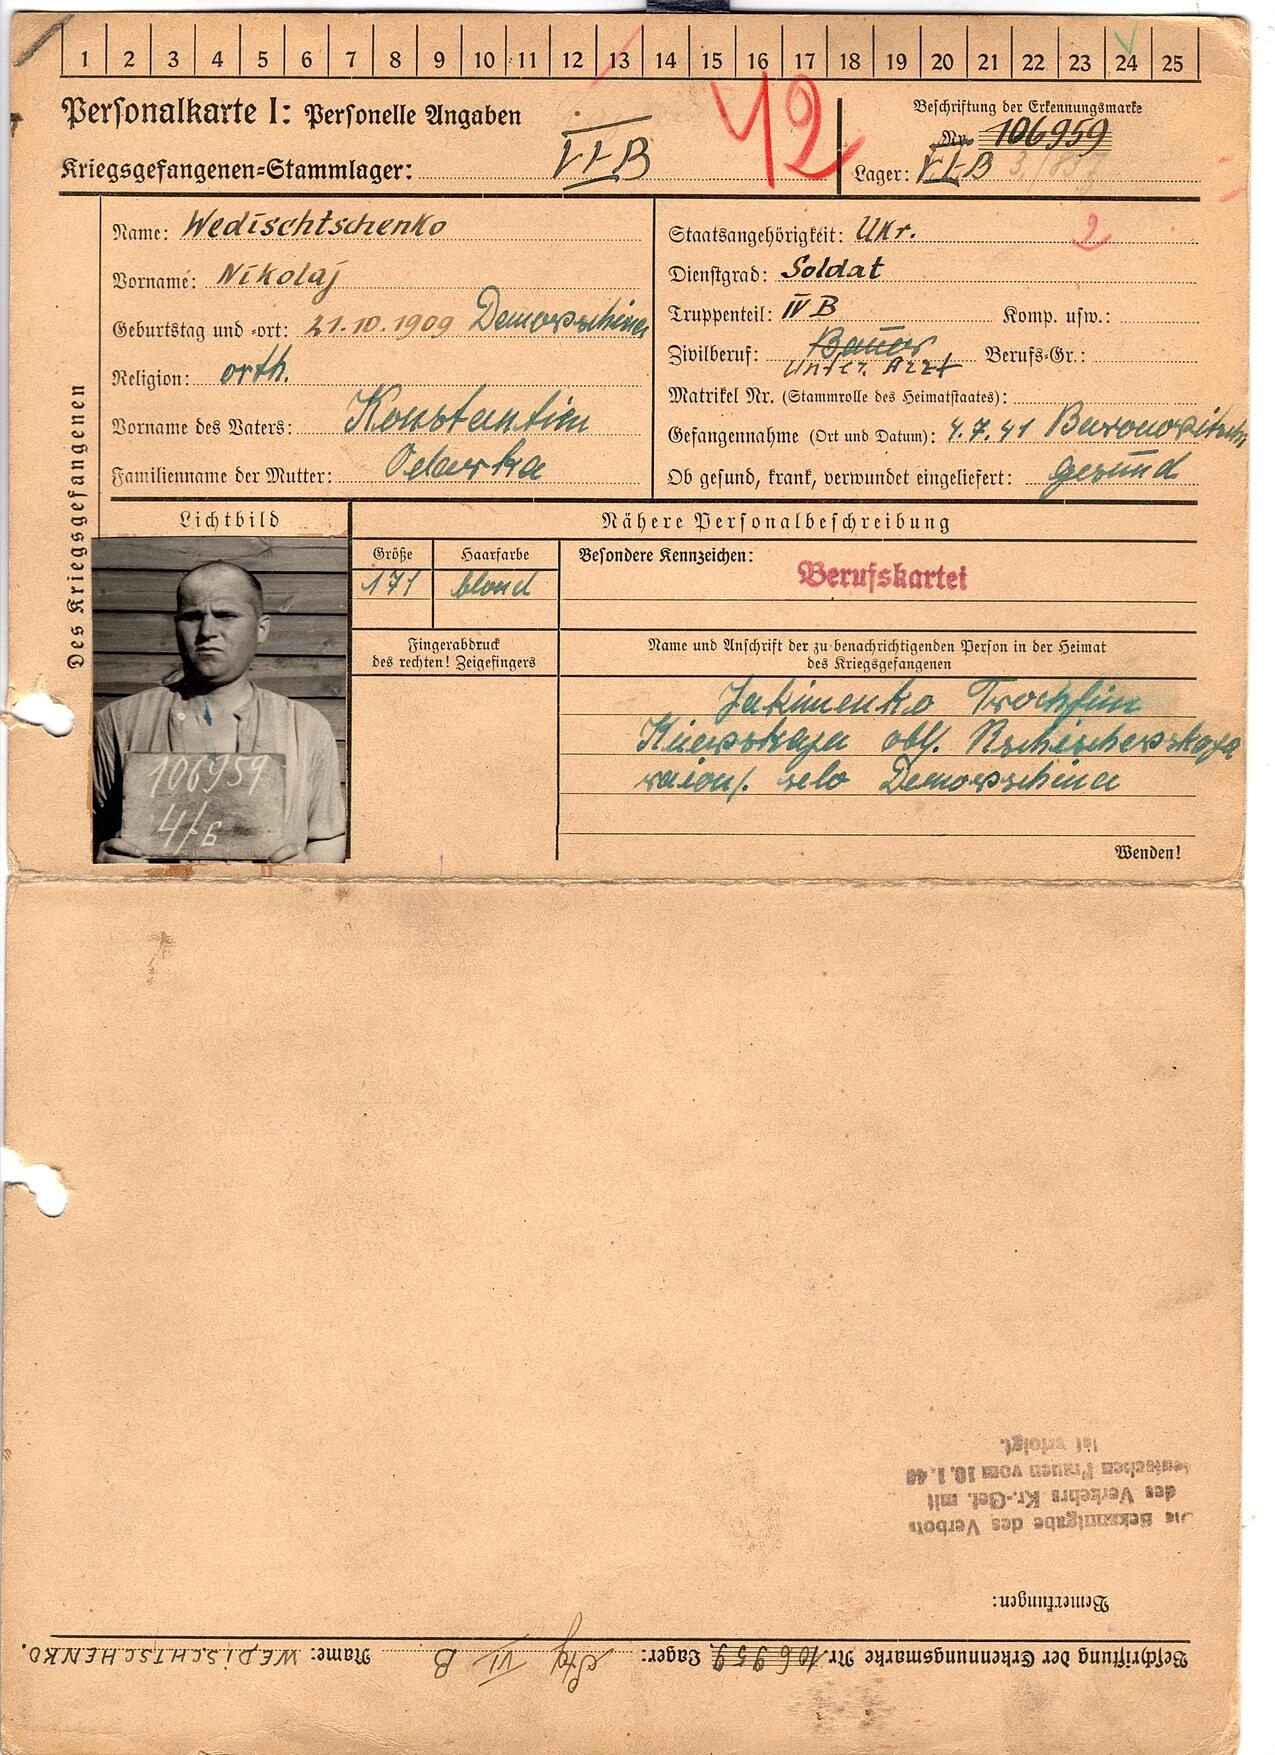 1 2 3 4 5 6 7 8 9 10 11 12 13 14 15 16 17 18 19 20 21 22 23 24 25
Personalkarte I: Personelle Angaben
42
Beschriftung der Erkennungsmarke
Nr. 106959
Kriegsgefangenen-Stammlager: VI B
Lager: VI B
Des Kriegsgefangenen
Name: Wedischtschenko
Vorname: Nikolaj
Geburtstag und -ort: 21.10.1909 Demowschina
Religion: orth.
Vorname des Vaters: Konstantin
Familienname der Mutter: Odarka
Staatsangehörigkeit: Ukr.
2
Dienstgrad: Soldat
Truppenteil: IV B Komp. usw.:
Zivilberuf: Bauer Berufs-Gr.:
Unter. Arzt
Matrikel Nr. (Stammrolle des Heimatstaates):
Gefangennahme (Ort und Datum): 4.7.41 Baronowitschi
Ob gesund, krank, verwundet eingeliefert: gesund
Lichtbild
Nähere Personalbeschreibung
Größe Haarfarbe
171 blond
Besondere Kennzeichen:
Berufskartei
Fingerabdruck
des rechten! Zeigefingers
Name und Anschrift der zu benachrichtigenden Person in der Heimat
des Kriegsgefangenen
Jakimenko Trochfim
Kiewskaja obl. Rschischewskaja
raion/. selo Demowschina
106959
4/6
Wenden!
Beschriftung der Erkennungsmarke Nr. 106959 Lager: Stlg VI B Name: WEDISCHTSCHENKO.
Bemerkungen:
Die Bekanntgabe des Verbots
des Verkehrs Kr.-Gef. mit
deutschen Frauen vom 10.1.40
ist erfolgt.